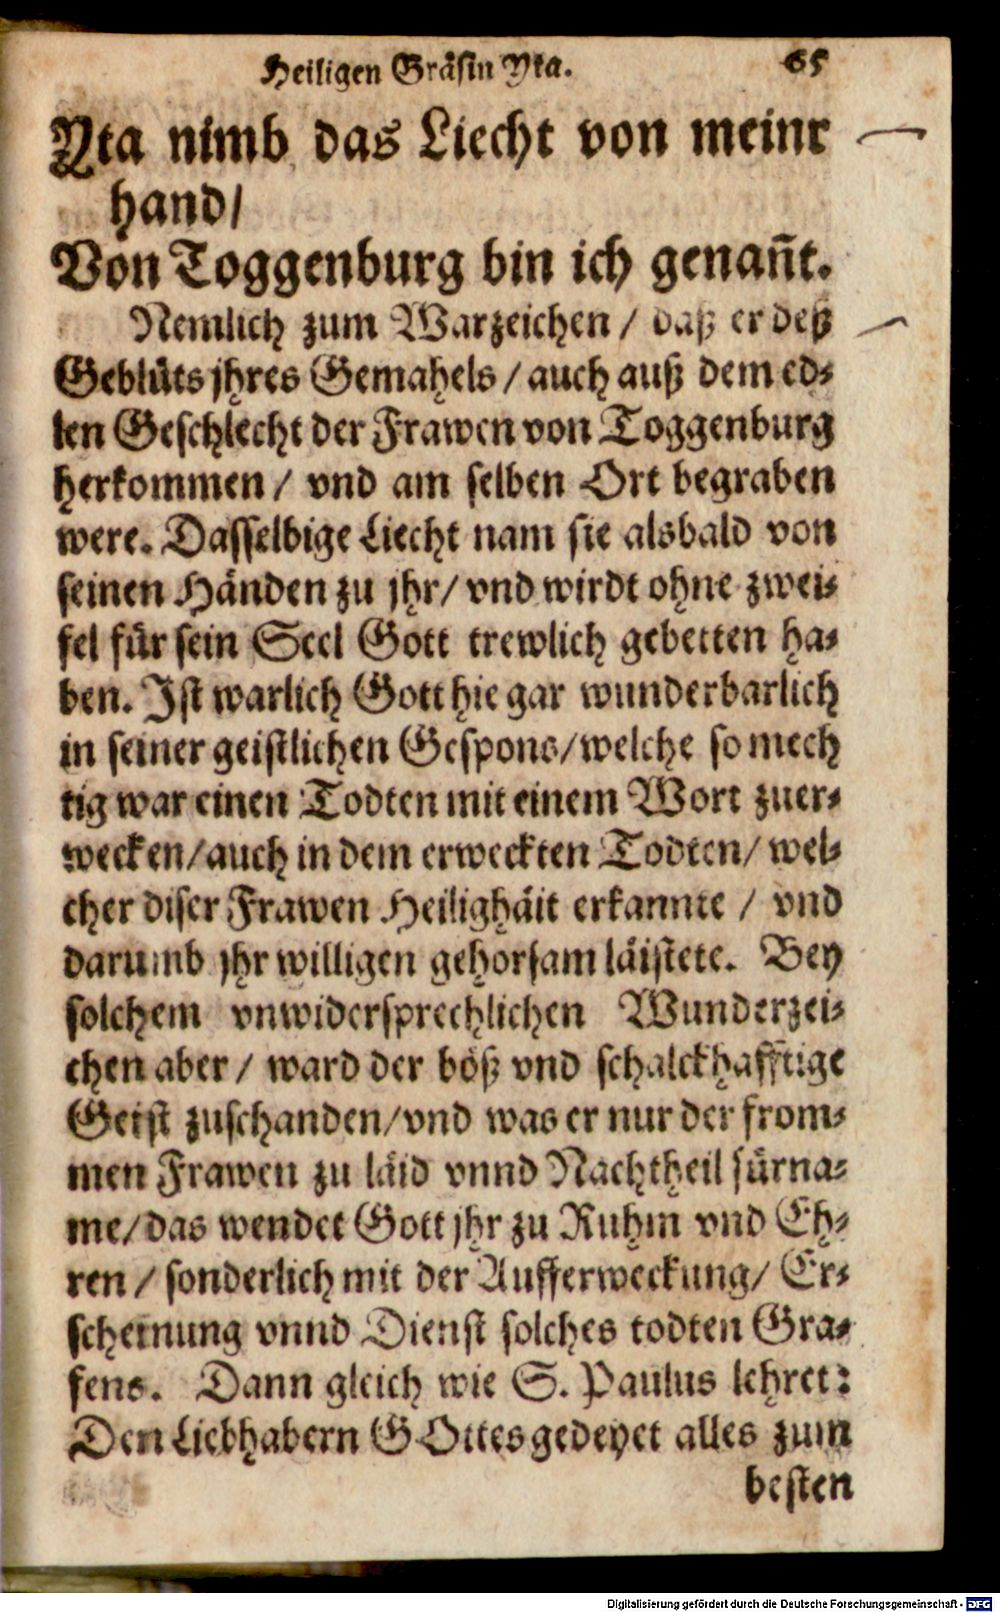 Heiligen Gräfin Yta. 65
Yta nimb das Liecht von meinr
hand/
Von Toggenburg bin ich genañt.
Nemlich zum Warzeichen / daß er deß
Geblüts jhres Gemahels / auch auß dem ed-
len Geschlecht der Frawen von Toggenburg
herkommen / vnd am selben Ort begraben
were. Dasselbige Liecht nam sie alsbald von
seinen Händen zu jhr/ vnd wirdt ohne zwei-
fel für sein Seel Gott trewlich gebetten ha-
ben. Ist warlich Gott hie gar wunderbarlich
in seiner geistlichen Gespons/welche so mech
tig war einen Todten mit einem Wort zuer-
wecken/auch in dem erweckten Todten/ wel-
cher diser Frawen Heilighäit erkannte / vnd
darumb jhr willigen gehorsam läistete. Bey
solchem vnwidersprechlichen Wunderzei-
chen aber / ward der böß vnd schalckhafftige
Geist zuschanden/vnd was er nur der from-
men Frawen zu läid vnnd Nachtheil fürna-
me/das wendet Gott jhr zu Ruhm vnd Eh-
ren / sonderlich mit der Aufferweckung/ Er-
scheinung vnnd Dienst solches todten Gra-
fens. Dann gleich wie S. Paulus lehret:
Den Liebhabern GOttes gedeyet alles zum
besten
Digitalisierung gefördert durch die Deutsche Forschungsgemeinschaft - DFG